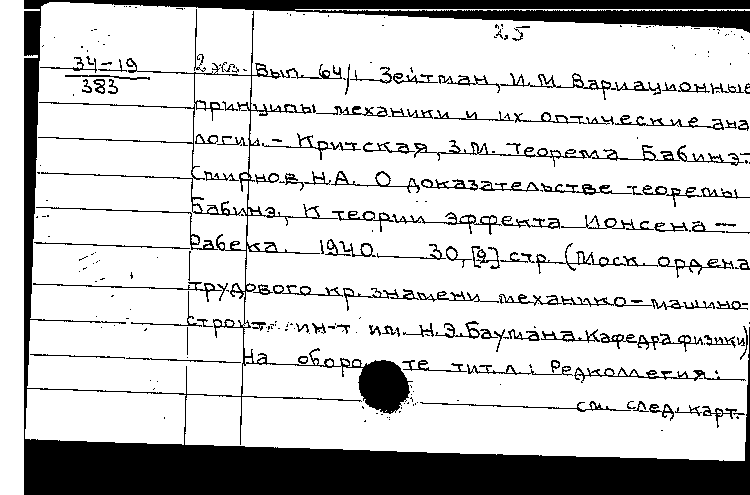 25
34-19
383
2 экз. Вып. 64/1 Зейтман, И.М. Вариационные
принципы механики и их оптические ана
логии. - Критская, З.М. Теорема Бабинэ.-
Смирнов, Н.А. О доказательстве теоремы
Бабинэ, К теории эффекта Ионсена —
Рабека. 1940. 30, [2] стр. (Моск. ордена
трудового кр. знамени механико-машино-
строит. ин-т им. Н.Э.Баумана. Кафедра физики)
На оборо те тит. л: Редколлегия:
см. след. карт.